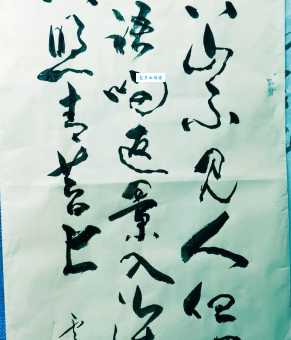 山不见人但
语响返景入深
照青苔上